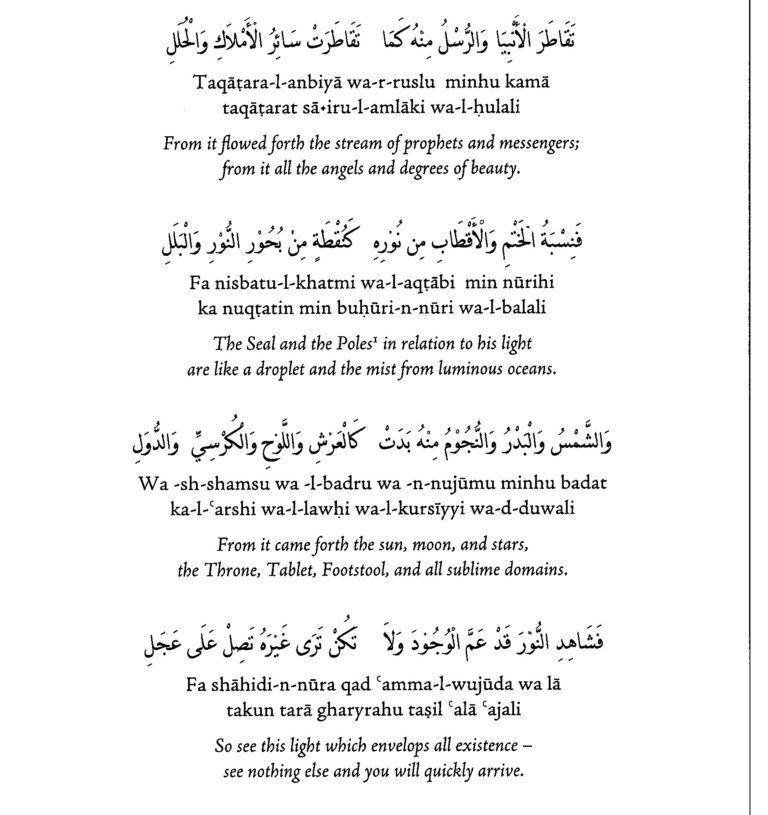 تَقَاطَرَ الْأَنْبِيَا وَالرُّسْلُ مِنْهُ كَمَا تَقَاطَرَتْ سَائِرُ الْأَمْلَاكِ وَالْحُلَلِ
Taqāṭara-l-anbiyā wa-r-ruslu minhu kamā
taqāṭarat sā•iru-l-amlāki wa-l-ḥulali
From it flowed forth the stream of prophets and messengers;
from it all the angels and degrees of beauty.
فَنِسْبَةُ الْخَتْمِ وَالْأَقْطَابِ مِن نُوْرِهِ كَنُقْطَةٍ مِنْ بُحُوْرِ النُّوْرِ وَالْبَلَلِ
Fa nisbatu-l-khatmi wa-l-aqṭābi min nūrihi
ka nuqṭatin min buḥūri-n-nūri wa-l-balali
The Seal and the Poles¹ in relation to his light
are like a droplet and the mist from luminous oceans.
وَالشَّمْسُ وَالْبَدْرُ وَالنُّجُوْمُ مِنْهُ بَدَتْ كَالْعَرْشِ وَاللَّوْحِ وَالْكُرْسِيِّ وَالدُّوَلِ
Wa -sh-shamsu wa -l-badru wa -n-nujūmu minhu badat
ka-l-ʿarshi wa-l-lawḥi wa-l-kursīyyi wa-d-duwali
From it came forth the sun, moon, and stars,
the Throne, Tablet, Footstool, and all sublime domains.
فَشَاهِدِ النُّوْرَ قَدْ عَمَّ الْوُجُوْدَ وَلَا تَكُنْ تَرَى غَيْرَهُ تَصِلْ عَلَى عَجَلِ
Fa shāhidi-n-nūra qad ʿamma-l-wujūda wa lā
takun tarā gharyrahu taṣil ʿalā ʿajali
So see this light which envelops all existence –
see nothing else and you will quickly arrive.